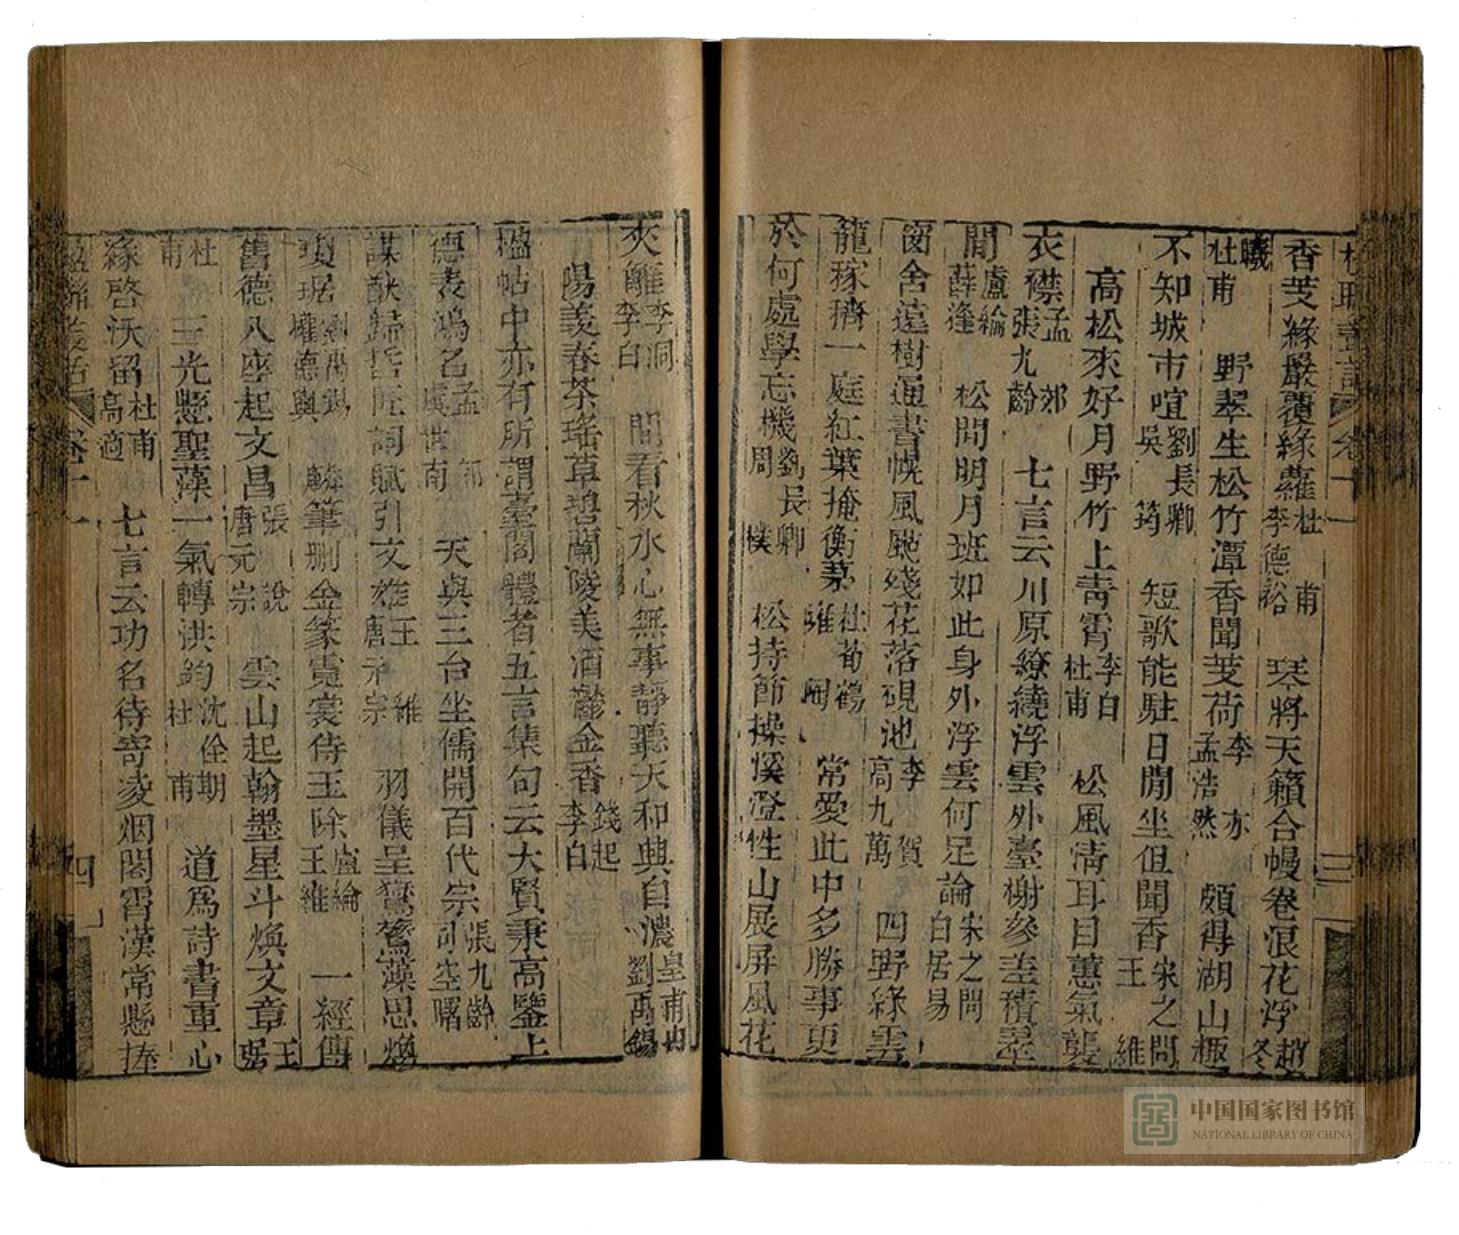 楹聯叢話 卷十一 三
香芰緣巖覆綠蘿杜甫李德裕 琴將天籟合幔卷浪花浮趙冬
曦杜甫 野翠生松竹潭香聞芰荷李亦孟浩然 頗得湖山趣
不知城市喧劉長卿吳筠 短歌能駐日閒坐但聞香宋之問王維
高松來好月野竹上靑霄李白杜甫 松風淸耳目蕙氣襲
衣襟孟郊張九齡 七言云川原繚繞浮雲外臺榭參差積翠
間盧綸薛逢 松間明月班如此身外浮雲何足論宋之問白居易
窗舍遠樹通書幌風颭殘花落硯池李賀高九萬 四野綠雲
籠稼穡一庭紅葉掩衡茅杜荀鶴雍陶 常愛此中多勝事更
於何處學忘機劉長卿周樸 松持節操溪澄性山展屏風花
夾籬李洞李白 閒看秋水心無事靜聽天和興自濃皇甫冉劉禹錫
陽羨春茶瑤草碧蘭陵美酒鬱金香錢起李白
楹帖中亦有所謂臺閣體者五言集句云大賢秉高鑒上
德表鴻名孟郊虞世南 天與三台坐儒開百代宗張九齡司空曙
謀猷歸哲匠詞賦引文雄王維唐玄宗 羽儀呈鴛鷺藻思煥
瓊琚劉禹錫權德輿 麟筆刪金篆霓裳侍玉除盧綸王維 一經傳
舊德八座起文昌張說唐元宗 雲山起翰墨星斗煥文章王琚
杜甫 三光懸聖藻一氣轉洪鈞沈佺期杜甫 道爲詩書重心
緣啓沃留杜甫高適 七言云功名待寄凌烟閣霄漢常懸捧
楹聯叢話 卷十一 四
中国国家图书馆
NATIONAL LIBRARY OF CHINA